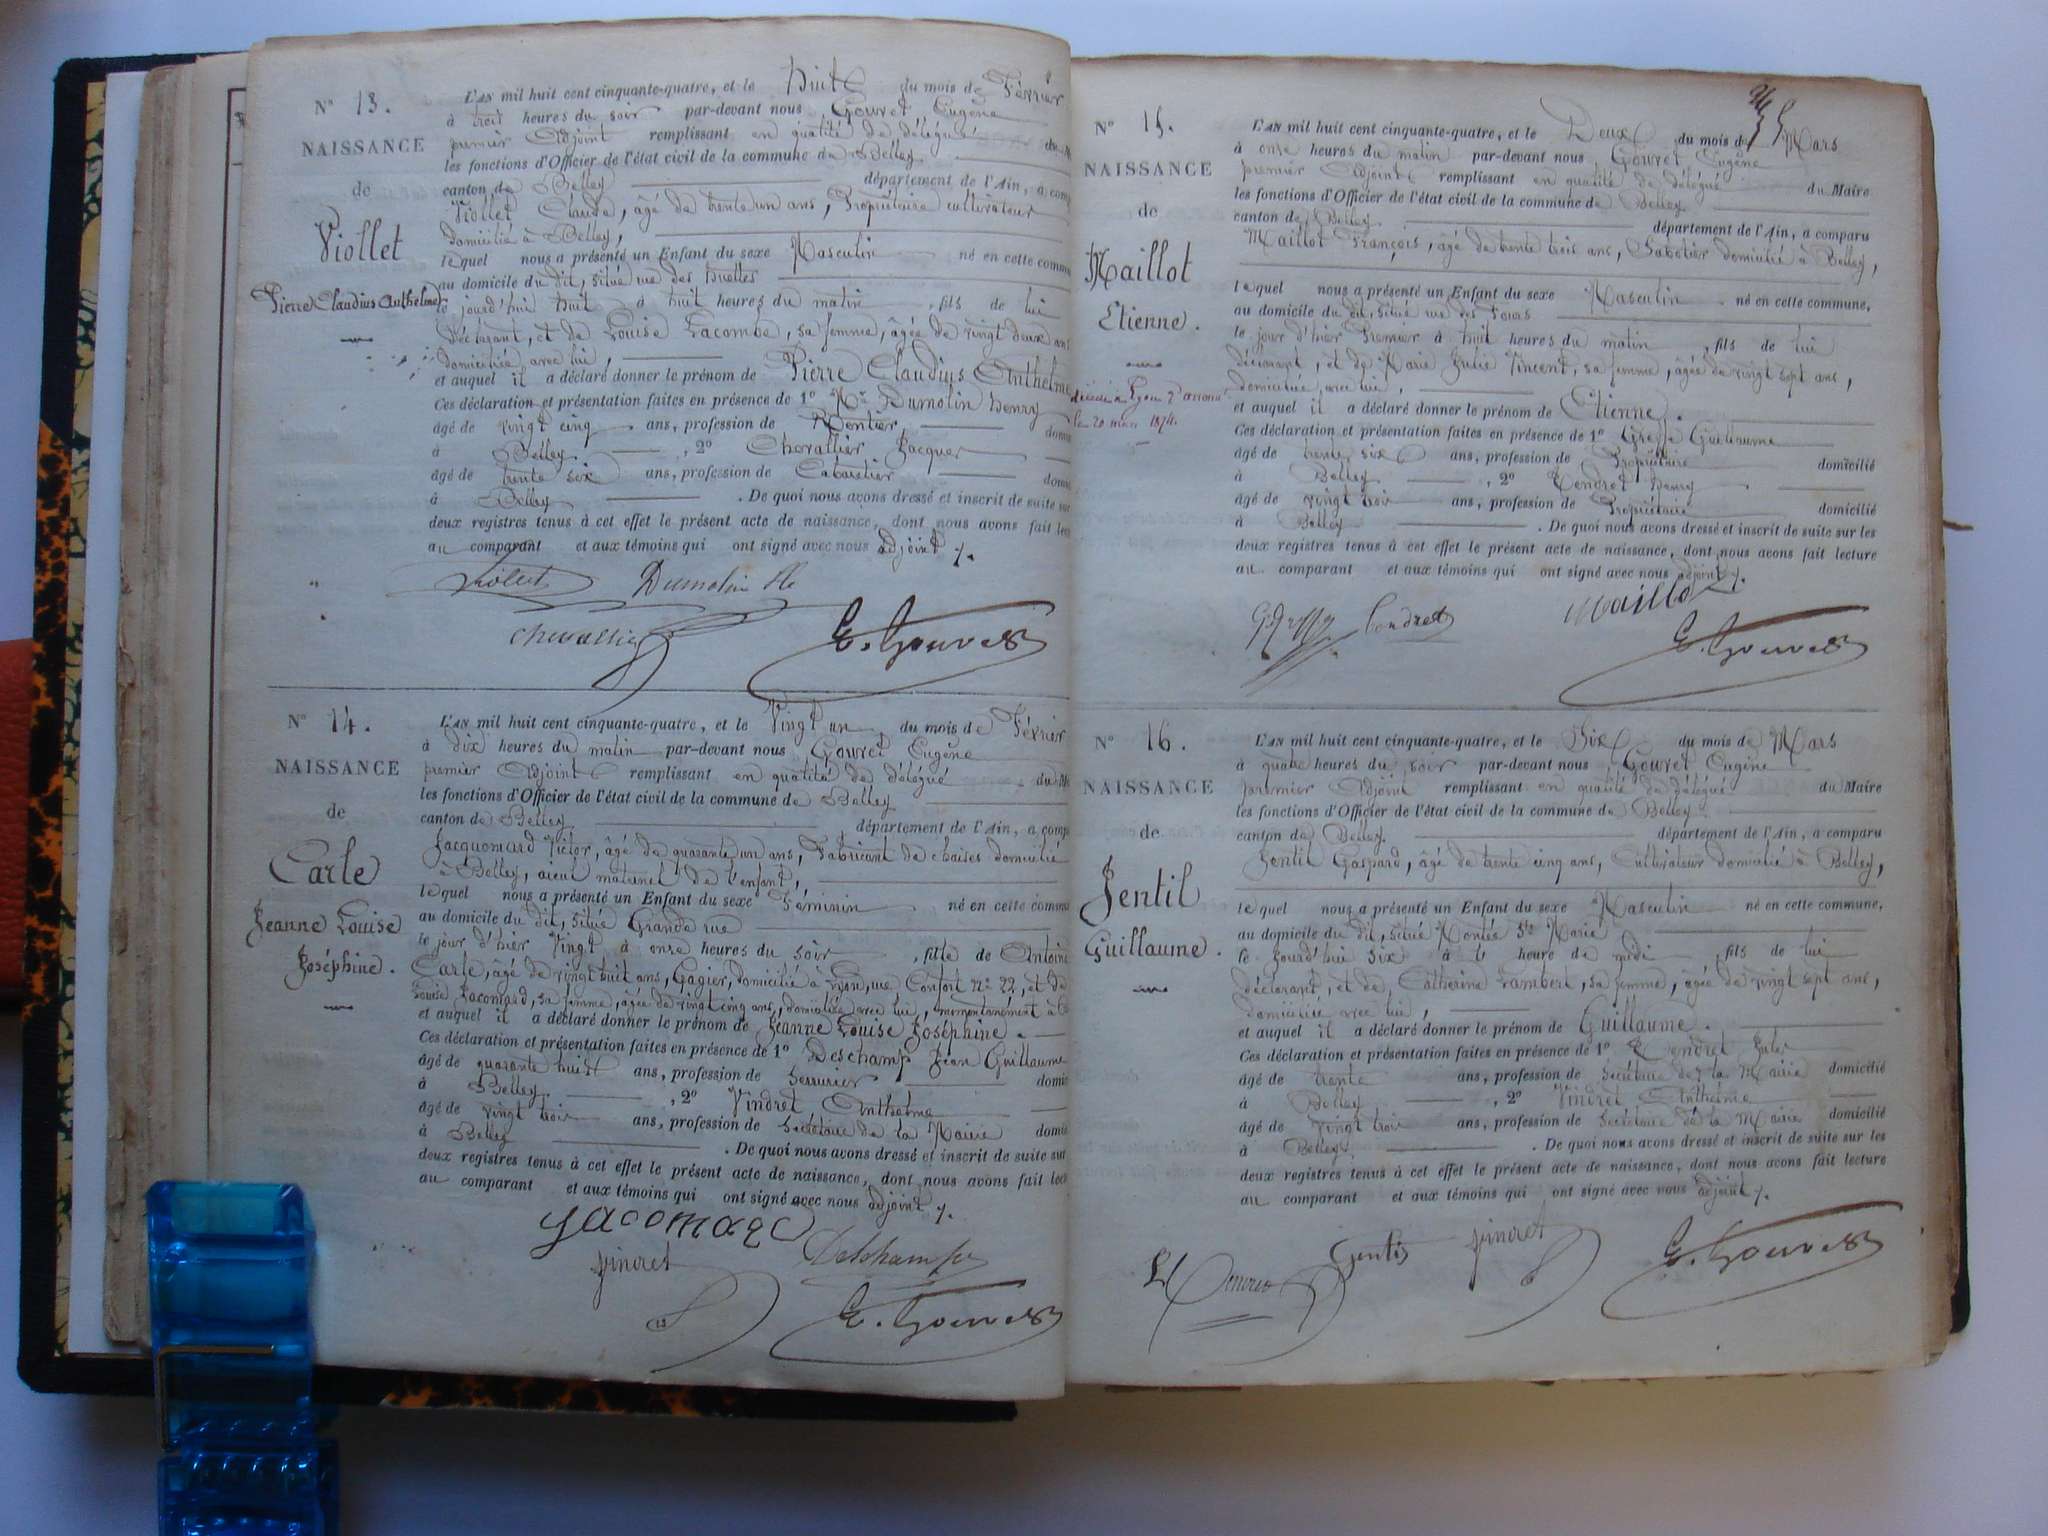 N° 13.
NAISSANCE
de
Viollet
Pierre Claudius Anthelme
L'AN mil huit cent cinquante-quatre, et le huit du mois de Février
à trois heures du soir par-devant nous Gouvret Eugène
premier Adjoint remplissant en qualité de délégué du M
les fonctions d'Officier de l'état civil de la commune de Belley
canton de Belley département de l'Ain, a comp
Viollet Claude, âgé de trente un ans, Propriétaire cultivateur
domicilié à Belley,
lequel nous a présenté un Enfant du sexe Masculin né en cette commu
au domicile du dit, situé rue des
ce jourd'hui huit à huit heures du matin, fils de lui
Déclarant, et de Louise Lacombe, sa femme, âgée de vingt deux ans
domiciliée avec lui,
et auquel il a déclaré donner le prénom de Pierre Claudius Anthelme
Ces déclaration et présentation faites en présence de 1° Mr Dumolin henry
âgé de vingt cinq ans, profession de Rentier domi
à Belley, 2° Chevallier Jacques
âgé de trente six ans, profession de Cabaretier domi
à Belley. De quoi nous avons dressé et inscrit de suite sur
deux registres tenus à cet effet le présent acte de naissance, dont nous avons fait lec
au comparant et aux témoins qui ont signé avec nous adjoint
Viollet Dumolin
Chevallier E. Gouvret
N° 14.
NAISSANCE
de
Carle
Jeanne Louise
Joséphine.
L'AN mil huit cent cinquante-quatre, et le Vingt un du mois de Février
à dix heures du matin par-devant nous Gouvret Eugène
premier Adjoint remplissant en qualité de délégué du M
les fonctions d'Officier de l'état civil de la commune de Belley
canton de Belley département de l'Ain, a comp
Jacquomard Victor, âgé de quarante un ans, Fabricant de chaises domicilié
à Belley, aieul maternel de l'enfant,
lequel nous a présenté un Enfant du sexe Féminin né en cette commu
au domicile du dit, situé Grande rue
le jour d'hier Vingt à onze heures du soir, fille de Antoine
Carle, âgé de vingt huit ans, Gagier, domicilié à Lyon, rue Confort n° 22, et de
Louise Jacomard, sa femme, âgée de vingt cinq ans, domiciliée avec lui, momentanément à
et auquel il a déclaré donner le prénom de Jeanne Louise Joséphine.
Ces déclaration et présentation faites en présence de 1° Deschamp Jean Guillaume
âgé de quarante huit ans, profession de Serrurier domi
à Belley, 2° Vindret Anthelme
âgé de vingt trois ans, profession de Secrétaire de la Mairie domi
à Belley. De quoi nous avons dressé et inscrit de suite sur
deux registres tenus à cet effet le présent acte de naissance, dont nous avons fait lec
au comparant et aux témoins qui ont signé avec nous adjoint
Jacomard
Vindret Deschamps
E. Gouvret
N° 15.
NAISSANCE
de
Maillot
Etienne.
décédé à Lyon 2e arrond
le 20 mars 1874.
L'AN mil huit cent cinquante-quatre, et le Deux du mois de Mars
à onze heures du matin par-devant nous Gouvret Eugène
premier Adjoint remplissant en qualité de délégué du Maire
les fonctions d'Officier de l'état civil de la commune de Belley
canton de Belley département de l'Ain, a comparu
Maillot François, âgé de trente trois ans, Sabotier domicilié à Belley,
lequel nous a présenté un Enfant du sexe Masculin né en cette commune,
au domicile du dit, situé rue des Fours
le jour d'hier Premier à huit heures du matin, fils de lui
déclarant, et de Marie Julie Vincent, sa femme, âgée de vingt sept ans,
domiciliée avec lui,
et auquel il a déclaré donner le prénom de Etienne.
Ces déclaration et présentation faites en présence de 1° Greffe Guillaume
âgé de trente six ans, profession de Propriétaire domicilié
à Belley, 2° Tendret henry
âgé de vingt trois ans, profession de Propriétaire domicilié
à Belley. De quoi nous avons dressé et inscrit de suite sur les
deux registres tenus à cet effet le présent acte de naissance, dont nous avons fait lecture
au comparant et aux témoins qui ont signé avec nous adjoint
Maillot
Tendret E. Gouvret
N° 16.
NAISSANCE
de
Jentil
Guillaume.
L'AN mil huit cent cinquante-quatre, et le Six du mois de Mars
à quatre heures du soir par-devant nous Gouvret Eugène
premier Adjoint remplissant en qualité de délégué du Maire
les fonctions d'Officier de l'état civil de la commune de Belley
canton de Belley département de l'Ain, a comparu
Jentil Gaspard, âgé de trente cinq ans, Cultivateur domicilié à Belley,
lequel nous a présenté un Enfant du sexe Masculin né en cette commune,
au domicile du dit, situé Montée Ste Marie
ce jourd'hui six à 1 heure de midi, fils de lui
déclarant, et de Catherine Lambert, sa femme, âgée de vingt sept ans,
domiciliée avec lui,
et auquel il a déclaré donner le prénom de Guillaume.
Ces déclaration et présentation faites en présence de 1° Tendret Jules
âgé de trente ans, profession de Secrétaire de la Mairie domicilié
à Belley, 2° Vindret Anthelme
âgé de vingt trois ans, profession de Secrétaire de la Mairie domicilié
à Belley. De quoi nous avons dressé et inscrit de suite sur les
deux registres tenus à cet effet le présent acte de naissance, dont nous avons fait lecture
au comparant et aux témoins qui ont signé avec nous adjoint
Gentil Vindret E. Gouvret